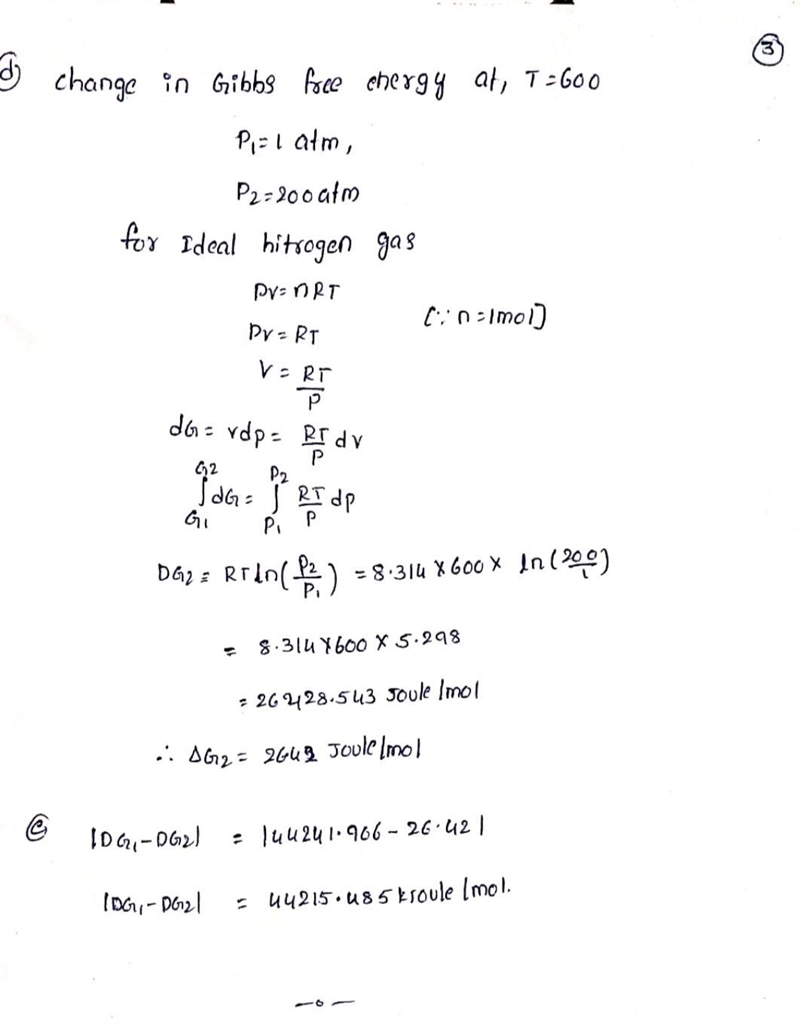 ③
ⓓ change in Gibbs free energy at, T=600
P₁=1 atm,
P₂=200 atm
for Ideal nitrogen gas
PV=nRT
[∵ n=1mol]
PV=RT
V = RT/P
dG = vdp = RT/P dv
∫G₁^G₂ dG = ∫P₁^P₂ RT/P dp
DG₂ = RT ln(P₂/P₁) = 8.314 × 600 × ln(200/1)
= 8.314 × 600 × 5.298
= 26428.543 Joule/mol
∴ ΔG₂ = Joule/mol
ⓔ |DG₁-DG₂| = |44241.906 - 26.42|
|DG₁-DG₂| = 44215.485 kJoule/mol.
—o—